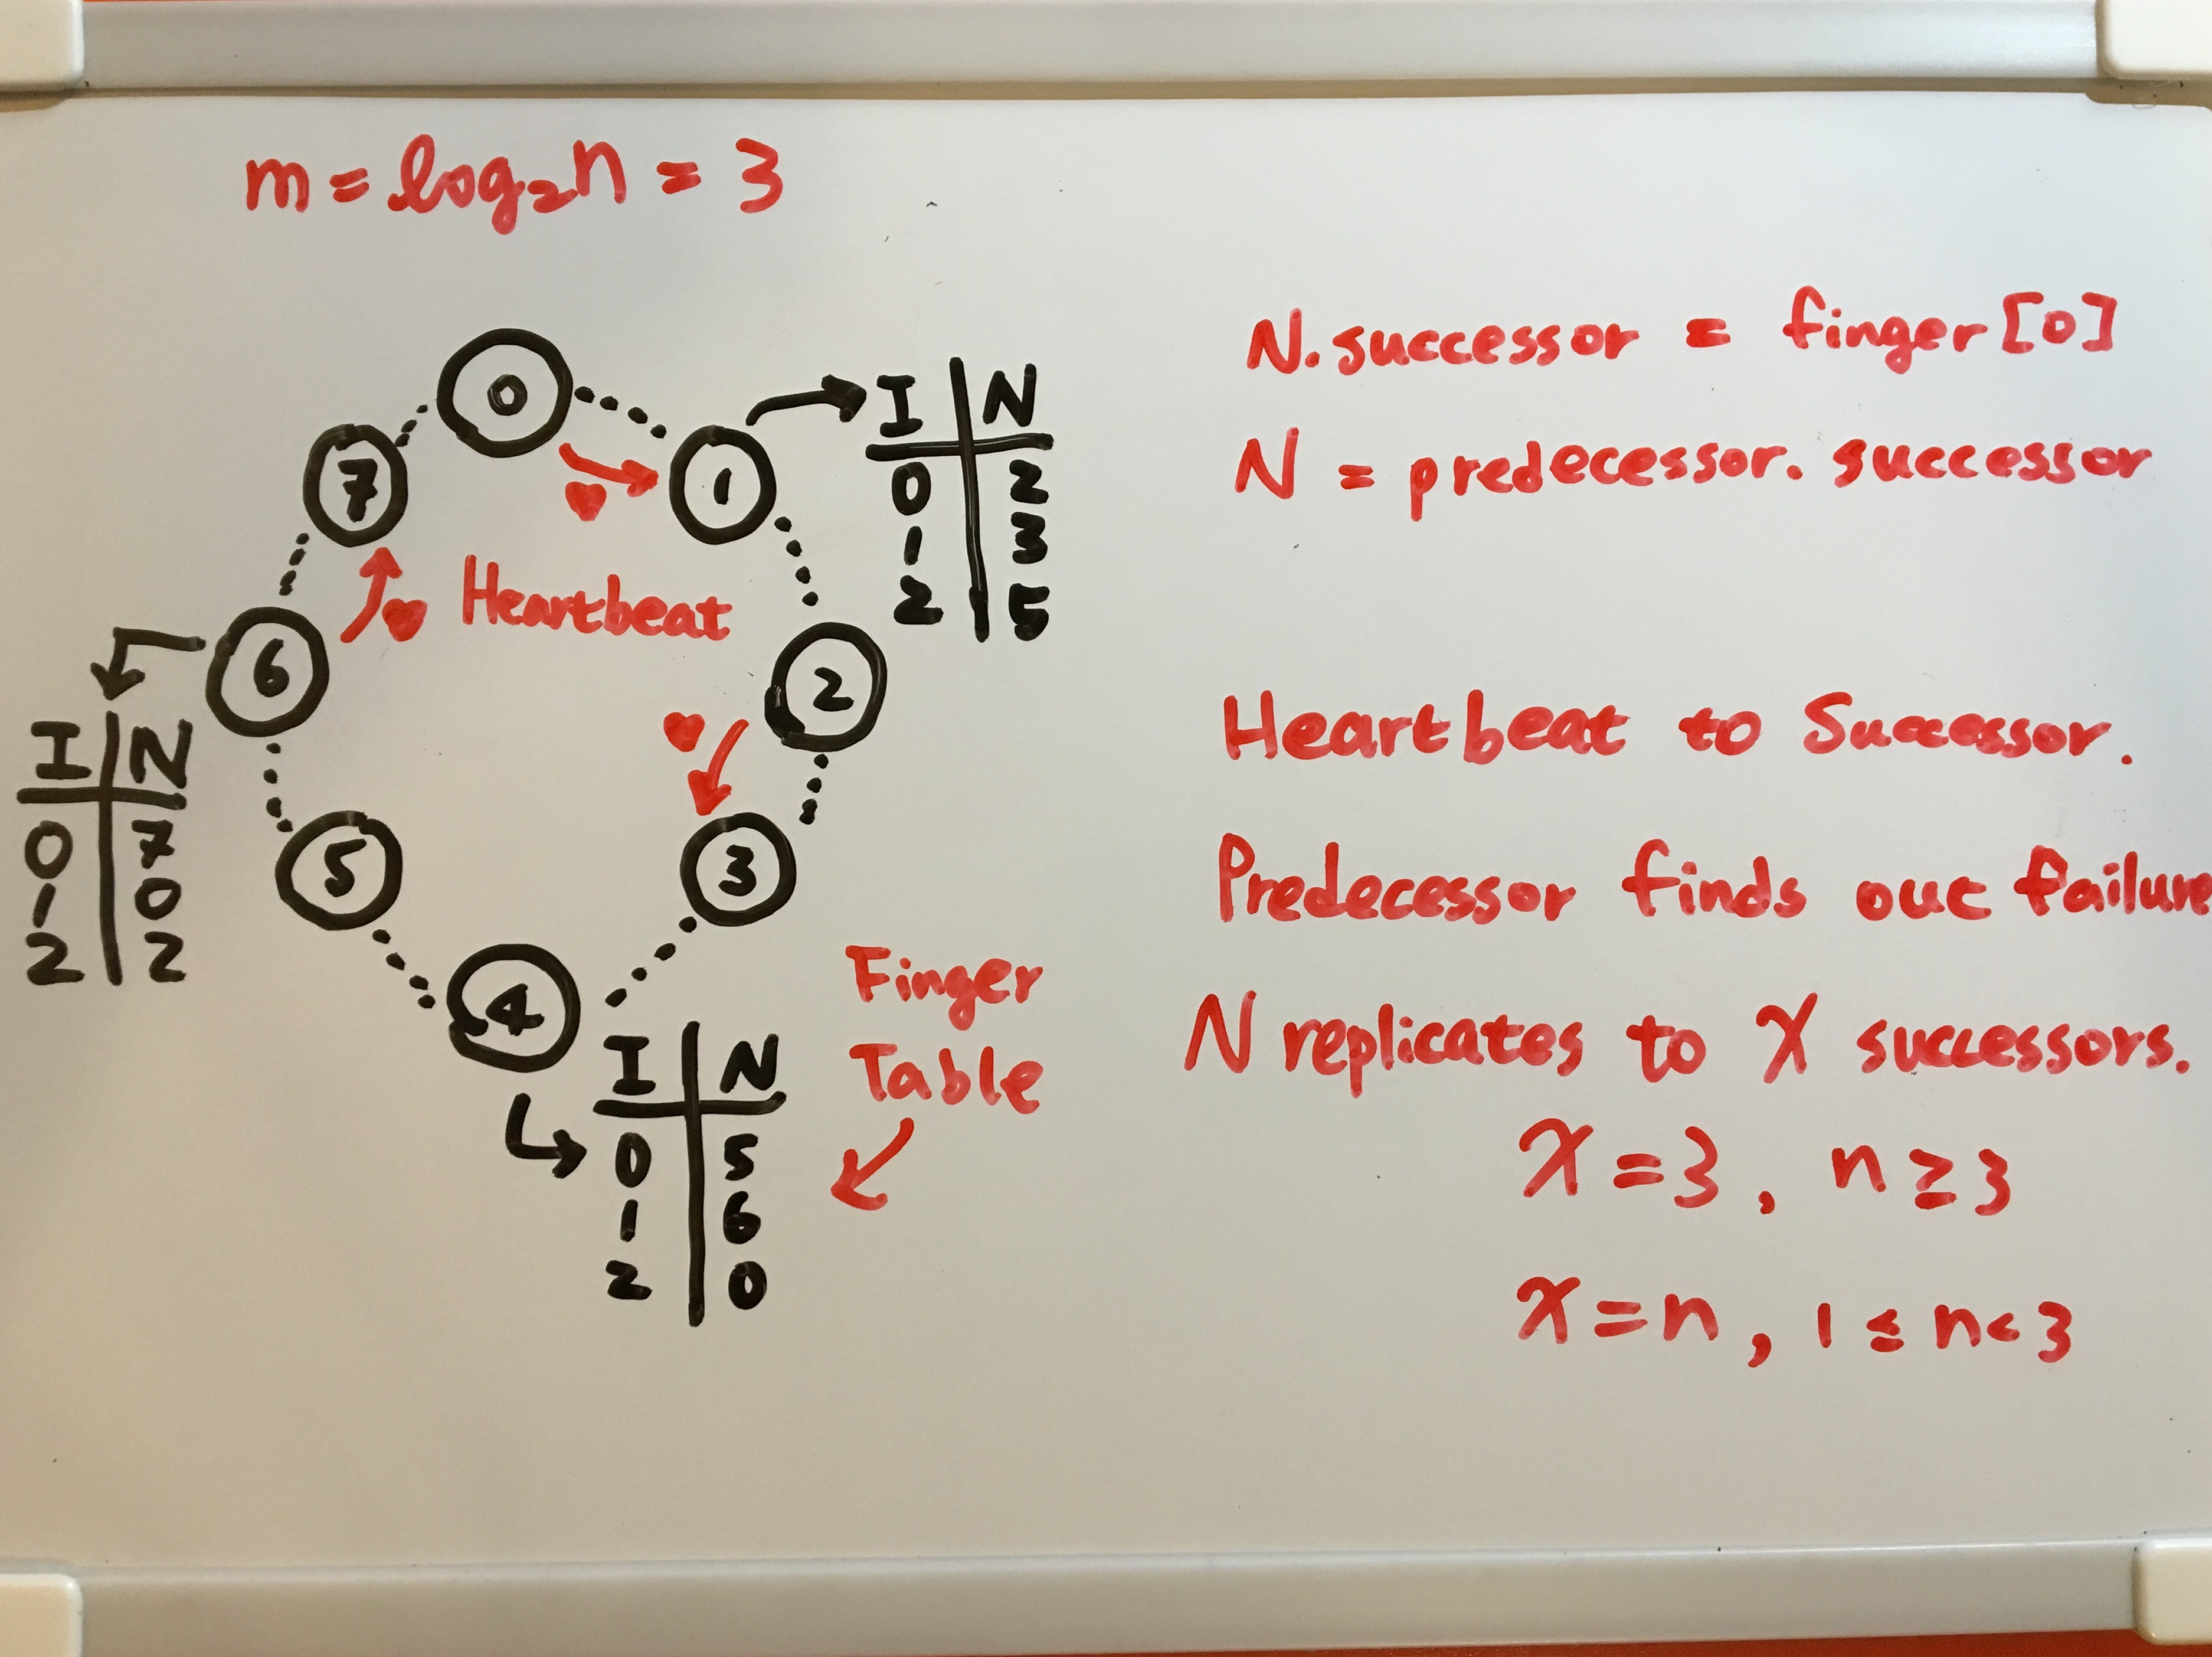 m = log₂n = 3
0
7
1
I | N
0 | 2
1 | 3
2 | 5
Heartbeat
6
2
I | N
0 | 7
1 | 0
2 | 2
5
3
4
Finger
Table
I | N
0 | 5
1 | 6
2 | 0
N.successor = finger[0]
N = predecessor. successor
Heartbeat to Successor.
Predecessor finds out failure
N replicates to X successors.
X = 3, n ≥ 3
X = n, 1 ≤ n < 3